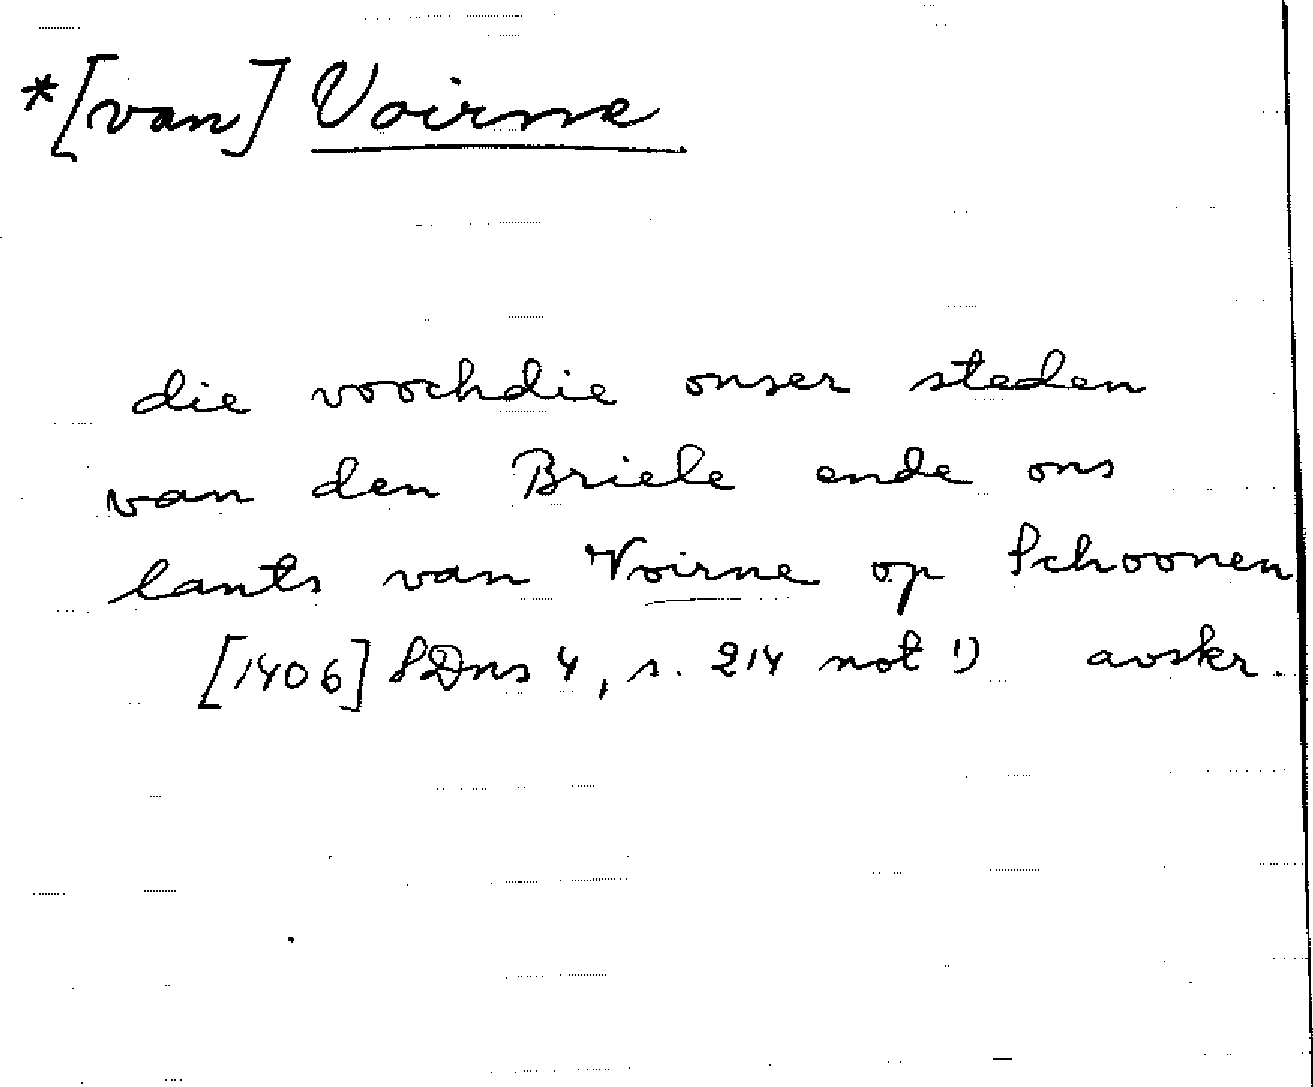 *[van] Voirne
die voochdie onser steden
van den Briele ende ons
lants van Voirne op Schoonen
[1406] SDns 4, s. 214 not 1) avskr.